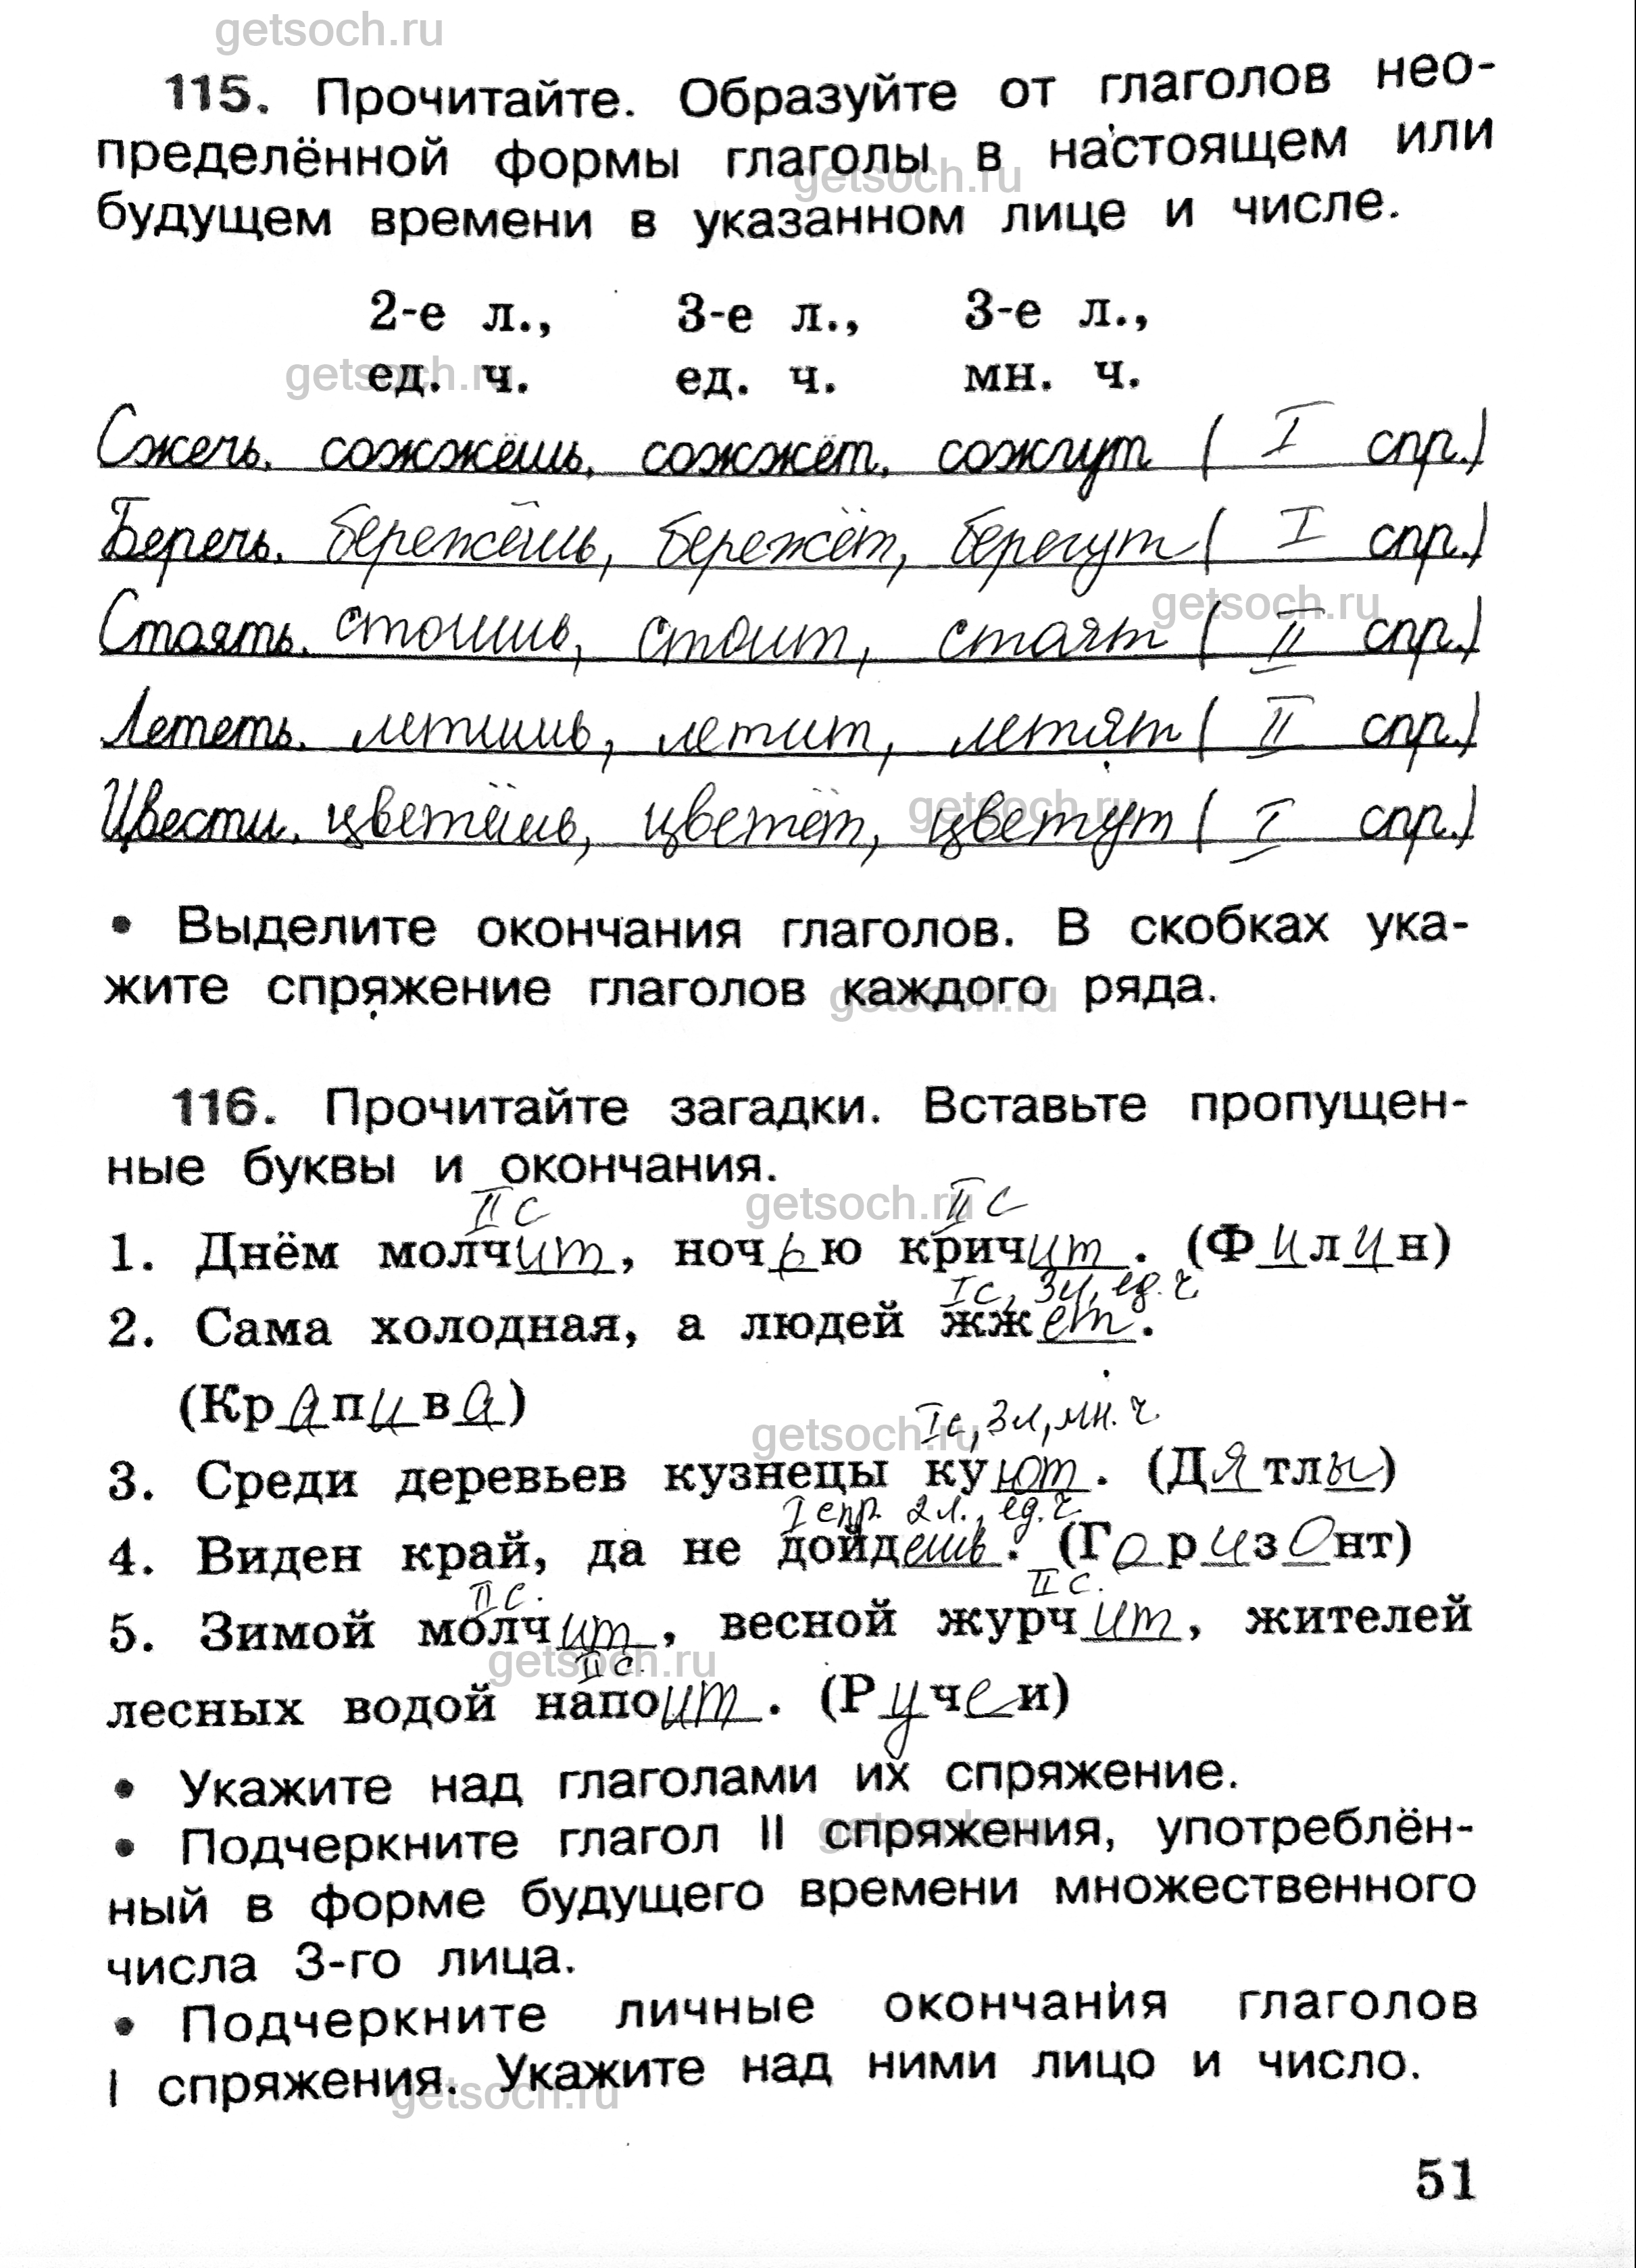 getsoch.ru
115. Прочитайте. Образуйте от глаголов нео-
getsoch.ru
пределённой формы глаголы в настоящем или
будущем времени в указанном лице и числе.
2-е л., 3-е л., 3-е л.,
getsoch.ru
ед. ч. ед. ч. мн. ч.
Сжечь, сожжёшь, сожжёт, сожгут ( I спр.)
Беречь, бережёшь, бережёт, берегут ( I спр.)
getsoch.ru
Стоять, стоишь, стоит, стоят ( II спр.)
Лететь, летишь, летит, летят ( II спр.)
getsoch.ru
Цвести, цветёшь, цветёт, цветут ( I спр.)
• Выделите окончания глаголов. В скобках ука-
жите спряжение глаголов каждого ряда.
getsoch.ru
116. Прочитайте загадки. Вставьте пропущен-
ные буквы и окончания.
getsoch.ru
II с II с
1. Днём молчит, ночью кричит. (Филин)
I с, 3 л, ед. ч.
2. Сама холодная, а людей жжет.
(Крапива)
getsoch.ru
I с, 3 л, мн. ч.
3. Среди деревьев кузнецы куют. (Дятлы)
I спр. 2 л., ед. ч.
4. Виден край, да не дойдешь. (Горизонт)
II с. II с.
5. Зимой молчит, весной журчит, жителей
getsoch.ru
II с.
лесных водой напоит. (Ручеи)
• Укажите над глаголами их спряжение.
getsoch.ru
• Подчеркните глагол II спряжения, употреблён-
ный в форме будущего времени множественного
числа 3-го лица.
• Подчеркните личные окончания глаголов
I спряжения. Укажите над ними лицо и число.
getsoch.ru
51